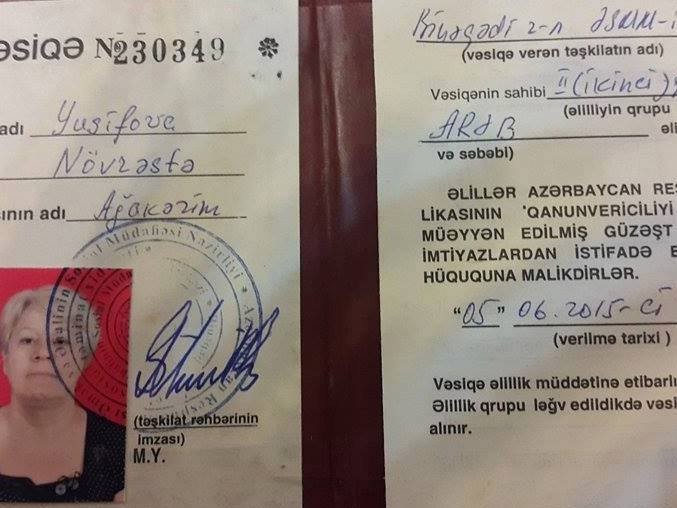 ƏSİQƏ № 230349
adı Yusifova
Növrəstə
sının adı Ağakərim
(təşkilat rəhbərinin
imzası)
M.Y.
Binəqədi r-n ƏSMM-i
(vəsiqə verən təşkilatın adı)
Vəsiqənin sahibi II (ikinci)
(əlilliyin qrupu
ARƏB əli
və səbəbi)
ƏLİLLƏR AZƏRBAYCAN RES
LİKASININ QANUNVERİCİLİYİ
MÜƏYYƏN EDİLMİŞ GÜZƏŞT
İMTİYAZLARDAN İSTİFADƏ E
HÜQUQUNA MALİKDİRLƏR.
"05" 06.2015-ci
(verilmə tarixi)
Vəsiqə əlillik müddətinə etibarlı
Əlillik qrupu ləğv edildikdə vəsi
alınır.